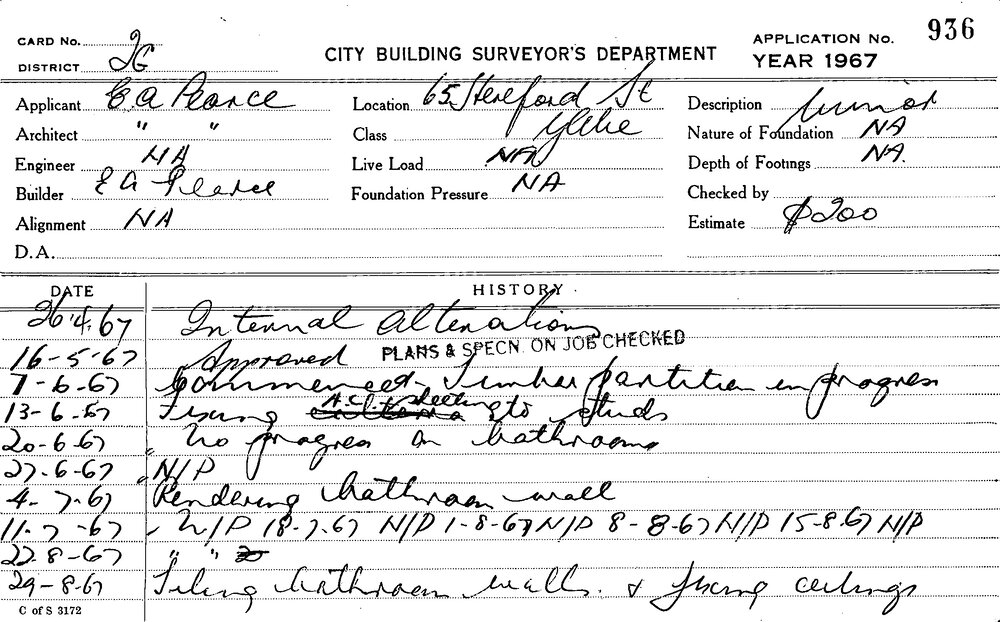 CARD No. 26 CITY BUILDING SURVEYOR'S DEPARTMENT APPLICATION No. 936
DISTRICT YEAR 1967
Applicant E.A Pearce Location 65 Hereford St Description
Architect " " Class Glebe Nature of Foundation NA
Engineer NA Live Load NA Depth of Footings NA.
Builder E A Pearce Foundation Pressure NA Checked by
Alignment NA Estimate $200
D.A.
DATE HISTORY
26.4.67 Internal alterations
16-5-67 Approved PLANS & SPECN. ON JOB CHECKED
7-6-67 Commenced - Timber partition in progress
13-6-67 Fixing A.C. sheeting to studs
20-6-67 " No progress on bathrooms
27-6-67 " N/P
4-7-67 Rendering bathroom wall
11-7-67 " N/P 18-7-67 N/P 1-8-67 N/P 8-8-67 N/P 15-8-67 N/P
22-8-67 " "
29-8-67 Tiling bathroom walls. & fixing ceilings
C of S 3172